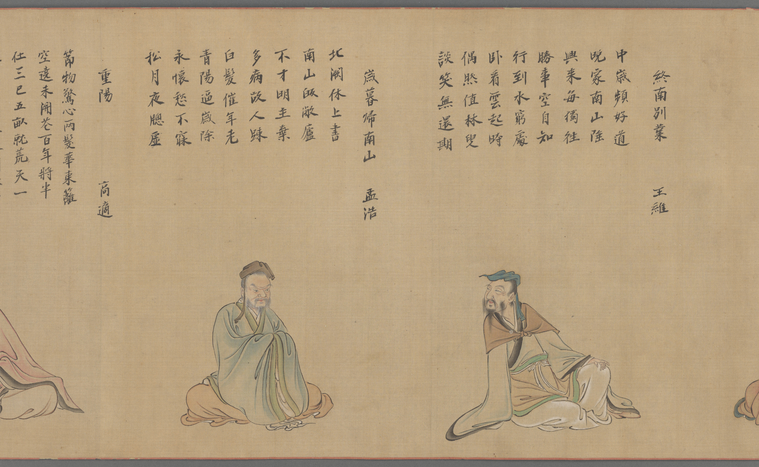 終南別業　王維
中歳頗好道
晩家南山陲
興来每獨往
勝事空自知
行到水窮處
卧看雲起時
偶然值林叟
談笑無還期
歳暮歸南山　孟浩
北闕休上書
南山歸敝廬
不才明主棄
多病故人踈
白髮催年老
青陽逼歳除
永懷愁不寐
松月夜牎虛
重陽　高適
節物驚心兩鬢華東籬
空遶未開花百年將半
仕三已五畝就荒天一